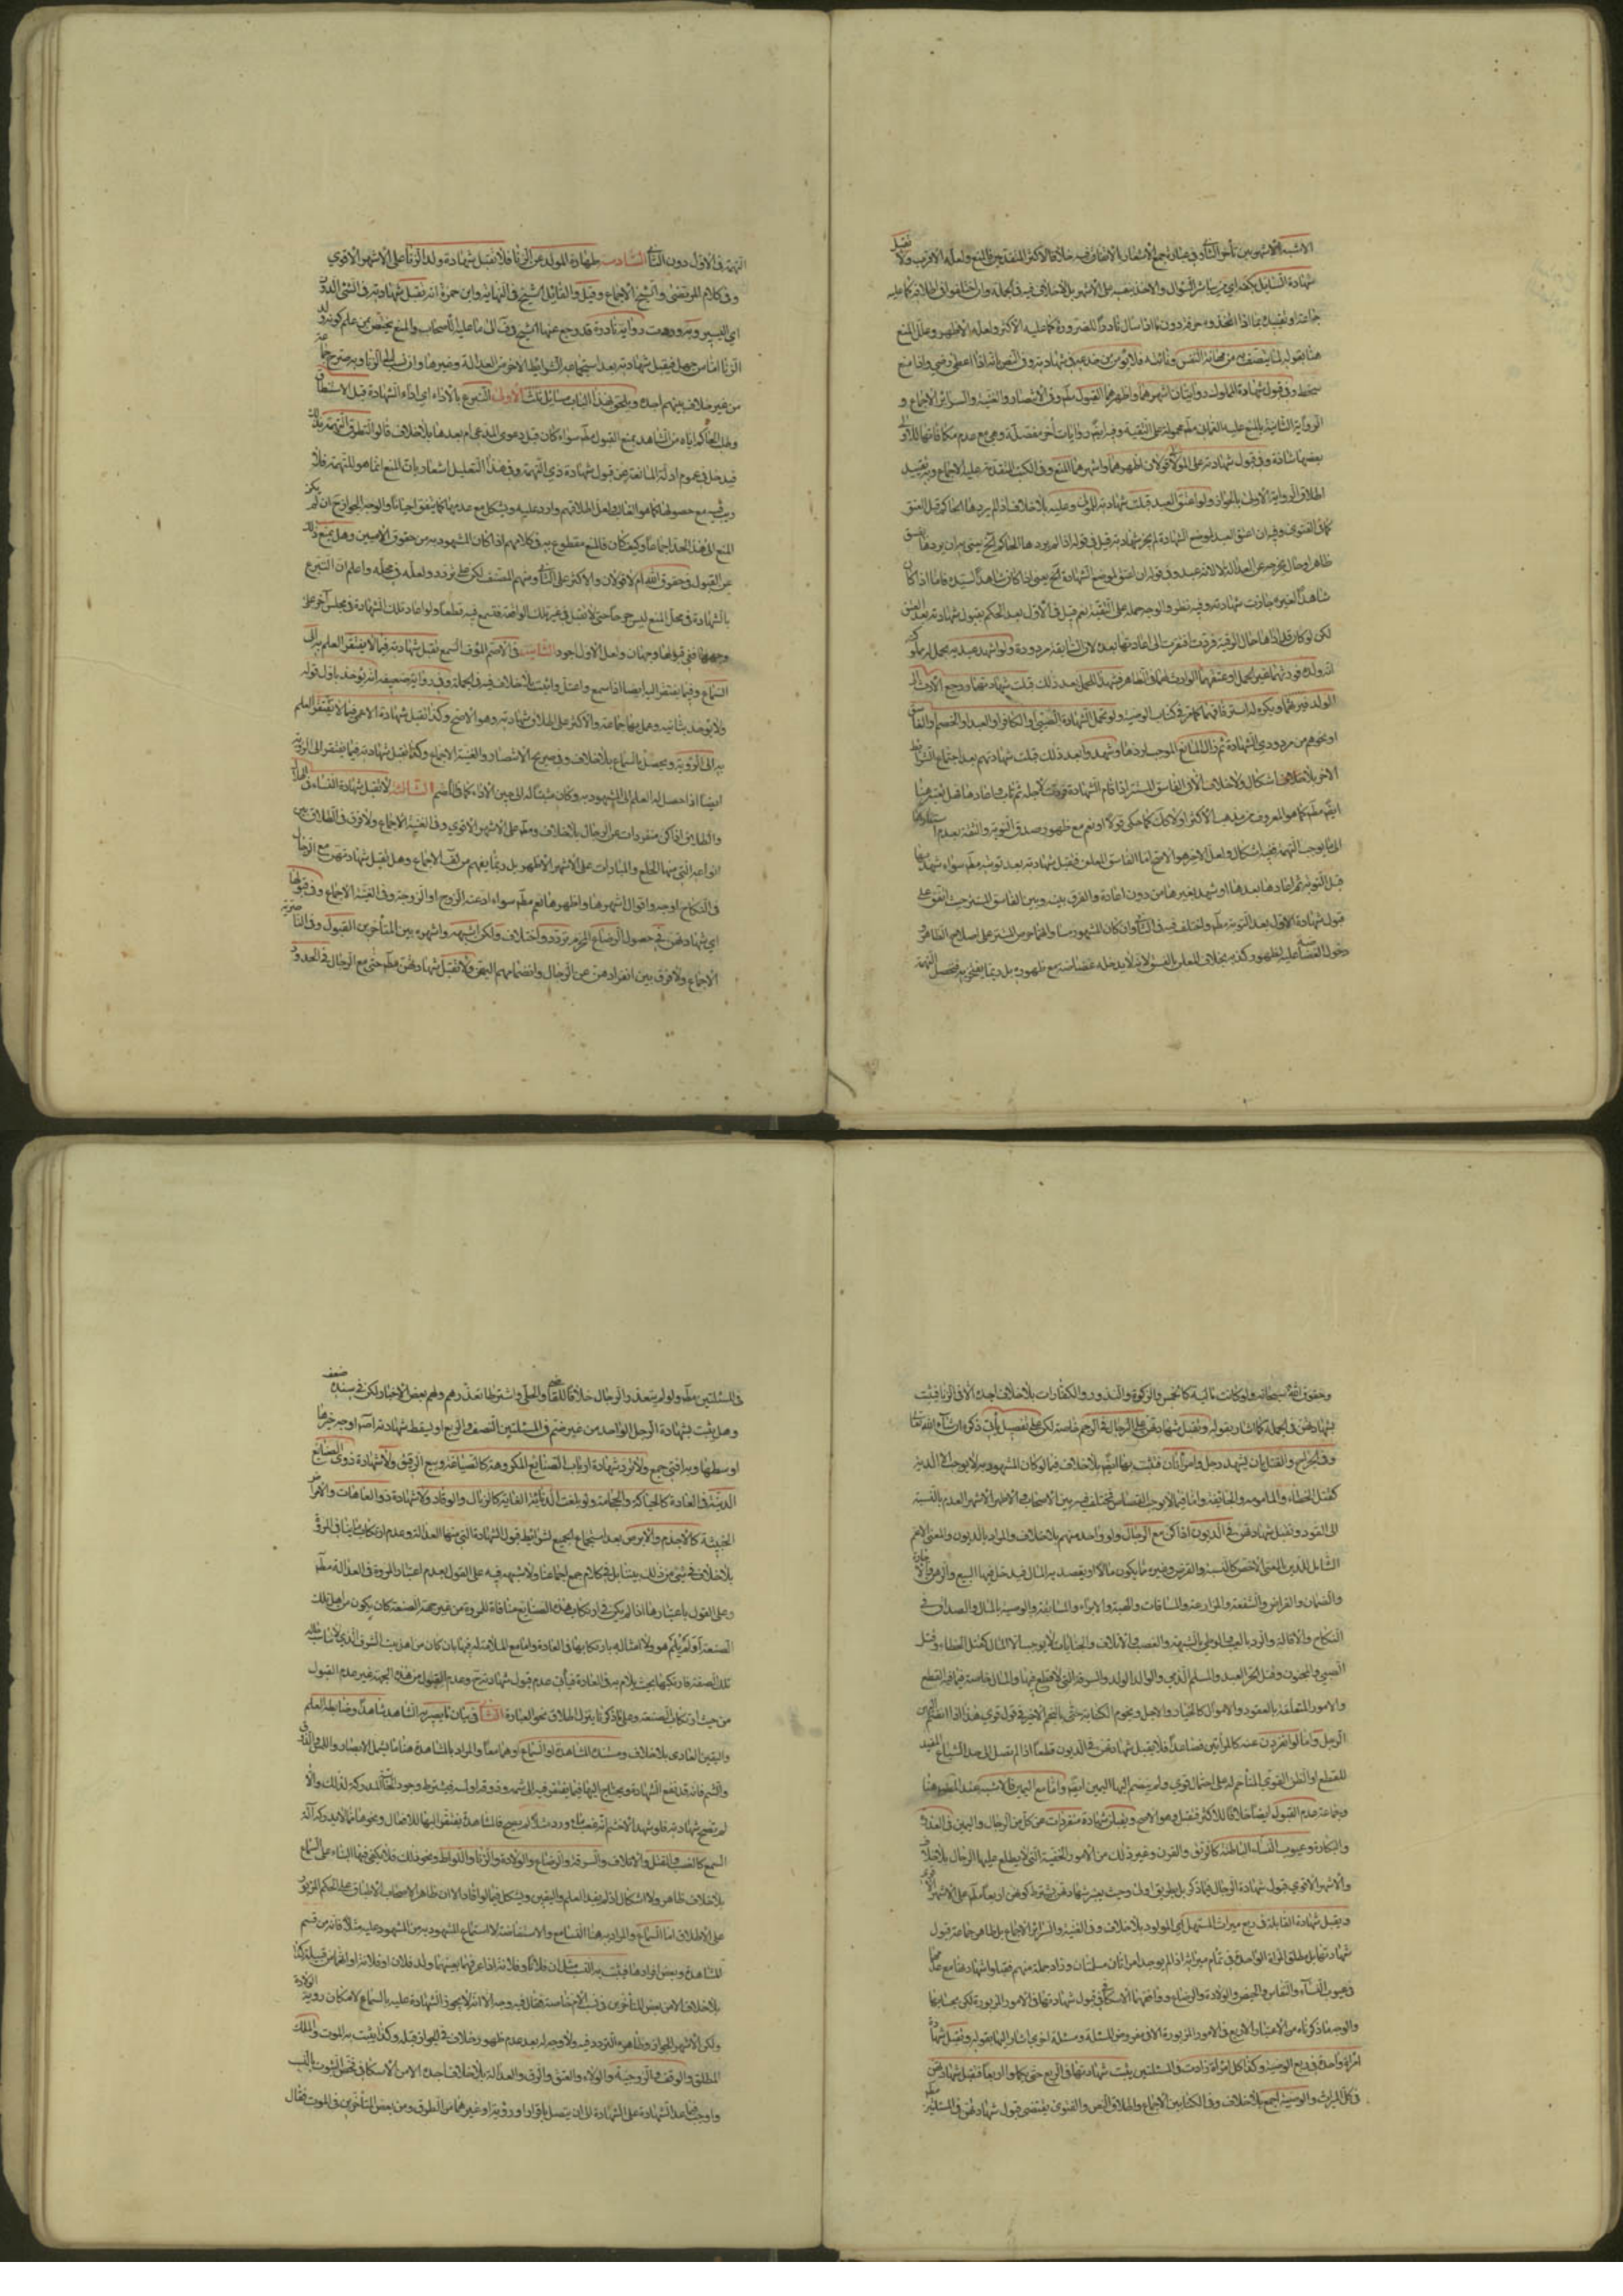 الاشبه الاشهر بين متأخر وفي عبارة جمع الاشعار بالاتفاق فيه خلافا لاكثر المتقدمين فالمنع ولعله الاقرب ولا تقبل
شهادة السائل بكفه اي من يباشر السؤال والاخذ بنفسه على الاشهر بلا خلاف فيه في الجملة وان اختلفوا في اطلاقه كما عليه
جماعة او تقييده بما اذا اتخذه حرفة دون ما اذا سأل نادرا للضرورة كما عليه الاكثر ولعله الاظهر وعلل المنع
هنا بقوله لما يتصف به من مهانة النفس فلا يؤمن من خدعه في شهادته وفي النص لانه اذا اعطي رضي واذا منع
سخط وفي قبول شهادة المملوك روايتان اشهرهما واظهرهما القبول مطلقا وفي الانتصار والغنية والسرائر الاجماع و
الرواية الثانية بالمنع عليه محمولة على التقية وفيه ايضا روايات أخر مفصلة وهي مع عدم مكافاتها للاولى
بعضها شاذة وفي قبول شهادته على المولى قولان اظهرهما واشهرهما المنع وفي الكتب المتقدمة عليه الاجماع وبه تقييد
اطلاق الرواية الاولى بالجواز ولو اعتق العبد قبلت شهادته للمولى وعليه بلا خلاف اذا لم يردها الحاكم قبل العتق
ظاهر او حال يخرجه عن العدالة لا لانه عبد وفي قوله ان اعتق لموضع الشهادة لم تجز يعني اذا كان شاهدا لسيده فاما اذا كان
شاهدا لغيره جازت شهادته وفيه نظر والوجه حمله على التقية نعم قيل في الاول بعد الحكم بقبول شهادته بعد العتق
لكن لو كان قد اداها حال الرقية فردت افتقرت الى اعادتها بعده لان السابقة مردودة ولو اشهد عبديه بحمل امته
انه ولده فورثهما غير الحمل واعتقهما الوارث ظاهرا فشهدا للحمل بعد ذلك قبلت شهادتهما ورجع الارث الى
الولد فيرثهما ويكره له استرقاقهما كما مر في كتاب الوصية ولو تحمل الشهادة الصبي او الكافر او العبد او الخصم او الفاسق
او نحوهم من مردودي الشهادة ثم زال المانع الموجب لردها وشهدوا بعد ذلك قبلت شهادتهم بعد اجتماع الشرائط
الاخر بلا خلاف ولا اشكال الا في الفاسق المستتر اذا اقام الشهادة فردت لاجله ثم تاب فاعادها
قبل التوبة ثم اعادها بعدها او شهد بغيرها من دون اعادة والفرق بينه وبين الفاسق المستتر حيث اتفق على
التهمة في الاول دون الثاني السادس طهارة المولد عن الزنا فلا تقبل شهادة ولد الزنا على الاشهر الاقوى
وفي كلام المرتضى والشيخ الاجماع وقيل والقائل الشيخ في النهاية وابن حمزة انه تقبل شهادته في الشيء الدون
اي اليسير وبه وردت رواية نادرة قد رجع عنها الشيخ في الخلاف الى ما عليه الاصحاب والمنع يختص بمن علم كونه ولد
الزنا اما من جهل فيقبل شهادته بعد استجماعه الشرائط الاخر من العدالة وغيرها وان نسب الى الزنا وبه صرح جماعة
من غير خلاف بينهم اجده ويلحق بهذا الباب مسائل ثلث الاولى التبرع بالاداء اي اداء الشهادة قبل الاستنطاق
وطلب الحاكم اياه من الشاهد يمنع القبول مطلقا سواء كان قبل دعوى المدعي ام بعدها بلا خلاف قالوا لتطرق التهمة بذلك
فيدخل في عموم ادلة المانعة عن قبول شهادة ذي التهمة وفي هذا التعليل اشعار بأن المنع انما هو للتهمة فلا
ريب فيه مع حصولها كما هو الغالب ولعل اطلاقهم وارد عليه ويشكل مع عدمها كما يتفق احيانا والوجه الجواز ح ان لم يكن
المنع الى هذا الحد اجماعا وكيف كان فالمنع مقطوع به في كلامهم اذا كان المشهود به من حقوق الآدميين وهل يمنع ذلك
عن القبول في حقوق الله ام لا قولان والاكثر على الثاني ومنهم المصنف لكن على تردد ولعله في محله واعلم ان التبرع
بالشهادة في محل المنع ليس جرحا حتى لا تقبل في غير تلك الواقعة فتسمع فيه قطعا ولو اعاد تلك الشهادة في مجلس آخر على
وجهها ففي قبولها وجهان ولعل الاول اجود الثانية في الاصم المؤف السمع تقبل شهادته فيما لا يفتقر العلم به الى
السماع وفيما يفتقر اليه ايضا اذا سمع واعتل واثبت بلا خلاف فيه في الجملة وفي رواية ضعيفة انه يؤخذ باول قوله
ولا يؤخذ بثانيه وعمل بها جماعة والاكثر على اطلاق شهادته وهو الاصح وكذا تقبل شهادة الاعمى فيما لا يفتقر العلم
به الى الرؤية ويحصل بالسماع بلا خلاف وفي صريح الانتصار والغنية الاجماع وكذا تقبل شهادته فيما يفتقر الى الرؤية
ايضا اذا حصل له العلم الى المشهود به وكان مثبتا له الى حين الاداء كما في الاصم الثالثة لا تقبل شهادة النساء في الهلال
والطلاق اذا كن منفردات عن الرجال بلا خلاف ومطلقا على الاشهر الاقوى وفي الغنية الاجماع ولا فرق في الطلاق بين
انواعه التي منها الخلع والمبارات على الاشهر الاظهر بل ربما يفهم من الاجماع وهل تقبل شهادتهن مع الرجال
في النكاح اوجه واقوال اشهرها واظهرها نعم مطلقا سواء ادعته الزوج او الزوجة وفي الغنية الاجماع وفي قبولها
اي شهادتهن في حصول الرضاع المحرم تردد واختلاف ولكن اشبهه واشهره بين المتأخرين القبول
الاجماع ولا فرق بين انفرادهن عن الرجال وانضمامهم اليهن ولا تقبل شهادتهن مطلقا حتى مع الرجال في الحدود
وحقوق الله سبحانه ولو كانت مالية كالخمس والزكوة والنذور والكفارات بلا خلاف اجده الا في الزنا فيثبت
بشهادتهن في الجملة كما اشار بقوله وتقبل شهادتهن مع الرجال في الرجم خاصة لكن على تفصيل يأتي ذكره ان شاء الله تعالى
وفي الجراح والقتل بان يشهد رجل وامرأتان فتثبت بها ايضا بلا خلاف فيما لو كان المشهود به لا يوجب الا الدية
كقتل الخطاء والمأمومة والجائفة واما فيما لا يوجب القصاص فمختلف فيه بين الاصحاب والاظهر الاشهر العدم بالنسبة
الى القود وتقبل شهادتهن في الديون اذا كن مع الرجال ولو واحد منهم بلا خلاف والمراد بالديون والمعنى الاعم
الشامل للدين المعنى الاخص كالنسية والقرض وغيره مما يكون مالا او يقصد به المال فيدخل فيها البيع والرهن والاجارة
والضمان والقراض والشفعة والمزارعة والمساقات والهبة والابراء والمسابقة والوصية بالمال والصداق في
النكاح والاقالة والرد بالعيب والوطي بالشبهة والغصب والاتلاف والجنايات لا يوجب الا المال كقتل الخطاء وقتل
الصبي والمجنون وقتل الحر العبد والمسلم الذمي والوالد الولد والسرقة التي لا قطع فيها والمال خاصة فيما فيه القطع
والامور المتعلقة بالعقود والاموال كالخيار والاجل ونجوم الكتابة حتى النجم الاخير في قول قوي هذا اذا انضم الى
الرجل واما لو انفردن عنه كالمرأتين فصاعدا فلا يقبل شهادتهن في الديون قطعا اذا لم تصل الى حد الشياع المفيد
للقطع او الظن القوي المتاخم له على احتمال قوي ولم ينضم اليها اليمين ايضا واما مع اليمين فالاشبه عند المصنف هنا
وجماعة عدم القبول ايضا خلافا للاكثر فتقبل وهو الاصح ويقبل شهادة منفردات عن كل من الرجال واليمين في العذرة
والبكارة وعيوب النساء الباطنة كالرتق والقرن وغير ذلك من الامور الخفية التي لا يطلع عليها الرجال بلا خلاف
والاشهر الاقوى قبول شهادة الرجال فيما ذكر بل بطريق اولى وحيث يعتبر شهادتهن يشترط كونهن اربعا مطلقا على الاشهر الاقوى
ويقبل شهادة القابلة في ربع ميراث المستهل اي المولود بلا خلاف وفي الغنية والسرائر الاجماع بل ظاهر جماعة قبول
شهادتها بل مطلق المرأة الواحدة في تمام ميراثه اذا لم يوجد امرأتان مسلمتان
في عيوب النساء والنفاس والحيض والولادة والرضاع ووافقهما الاسكافي في قبول شهادتها في الامور المزبورة لكن بحسابها
والوجه ما ذكرناه من الاعتبار الاربع في الامور المزبورة الا في مفروض المسئلة ومسئلة اخرى اشار اليها بقوله وتقبل شهادة
امرأة واحدة في ربع الوصية وكذا كل امرأة زادت في المسئلتين يثبت شهادتها في الربع حتى يكملوا اربعا فتقبل شهادتهن
في كل الميراث والوصية اجمع بلا خلاف وفي الكتابين الاجماع واطلاق النص والفتوى يقتضي قبول شهادتهن في المسئلتين
في المسئلتين مطلقا ولو لم يتعذر الرجال خلافا للقاضي والحلي واشترطا تعذرهم ولهم بعض الاخبار لكن في سنده ضعف
وهل يثبت بشهادة الرجل الواحد من غير ضم في المسئلتين النصف والربع او يسقط شهادته اصلا اوجه خيرها
اوسطها وبه افتى جمع ولا ترد شهادة ارباب الصنايع المكروهة كالصياغة وبيع الرقيق ولا شهادة ذوي الصنايع
الدنية في العادة كالحياكة والحجامة ولو بلغت الدنائة الغاية كالزبال والوقاد ولا شهادة ذو العاهات والامراض
الخبيثة كالاجذم والابرص بعد استجماع الجميع لشرائط قبول الشهادة التي منها العدالة وعدم ارتكاب ما ينافي المروة
بلا خلاف في شئ من ذلك بيننا بل في كلام جمع اجماعنا ولا شبهة فيه على القول بعدم اعتبار المروة في العدالة مطلقا
وعلى القول باعتبارها اذا لم يكن في ارتكاب هذه الصنايع منافاة للمروة من غير جهة الصنعة كان يكون من اهل تلك
الصنعة او لم يلم هو ولا امثاله بارتكابها في العادة واما مع الملامة له فيها بان كان من اهل بيت الشرف الذي لا يناسب حاله
تلك الصنعة فارتكبها بحيث يلام به في العادة فيأتي عدم قبول شهادته ح وعدم القبول من هذه الجهة غير عدم القبول
من حيث ارتكاب الصنعة وعلى ما ذكرنا ينزل اطلاق نحو العبارة الثاني في بيان ما يصير به الشاهد شاهدا وضابطه العلم
واليقين العادي بلا خلاف ومستنده المشاهدة او السماع او هما معا والمراد بالمشاهدة هنا ما يشمل الابصار واللمس والذوق
والشم فانه قد تقع الشهادة ويحتاج اليها فيما يفتقر فيه الى شمه وذوقه او لمسه فيشترط وجود الحاسة المدركة لذلك والا
لم تصح شهادته فلو شهد الاخشم لم يصح فالمشاهدة يفتقر اليها للافعال ونحوها مما لا يدركه آلة
السمع كالغصب والقتل والاتلاف والسرقة والرضاع والولادة والزنا واللواط ونحو ذلك فلا يكفي فيها البناء على السماع
بلا خلاف ظاهر ولا اشكال اذا لم يفد العلم واليقين ويشكل فيما لو افاد الا ان ظاهر الاصحاب الاطباق على الحكم المزبور
على الاطلاق اما السماع والمراد به هنا التسامع والاستفاضة لا استماع المشهود به من المشهود عليه مثلا فانه من قسم
المشاهدة وبعض افرادها فيثبت به النسب مثل ان فلانا وفلانة اذا عرفهما بعينهما ولد فلان او فلانة او انهما من قبيلة كذا
بلا خلاف الا من بعض المتأخرين في نسب الام خاصة فقال فيه وجه الا انه لا يجوز الشهادة عليه بالسماع لامكان رؤية الولادة
ولكن الاشهر الجواز وظاهره التردد فيه ولا وجه له بعد عدم ظهور خلاف في الجواز قبله وكذا يثبت به الموت والملك
المطلق والوقف والزوجية والولاء والعتق والرق والعدالة بلا خلاف اجده الا من الاسكافي فخص الثبوت بالنسب
واوجب فيما عداه الشهادة على الشهادة الى ان يتصل باقرار او رؤية او غيرهما من الطرق ومن بعض المتأخرين في الموت فقال